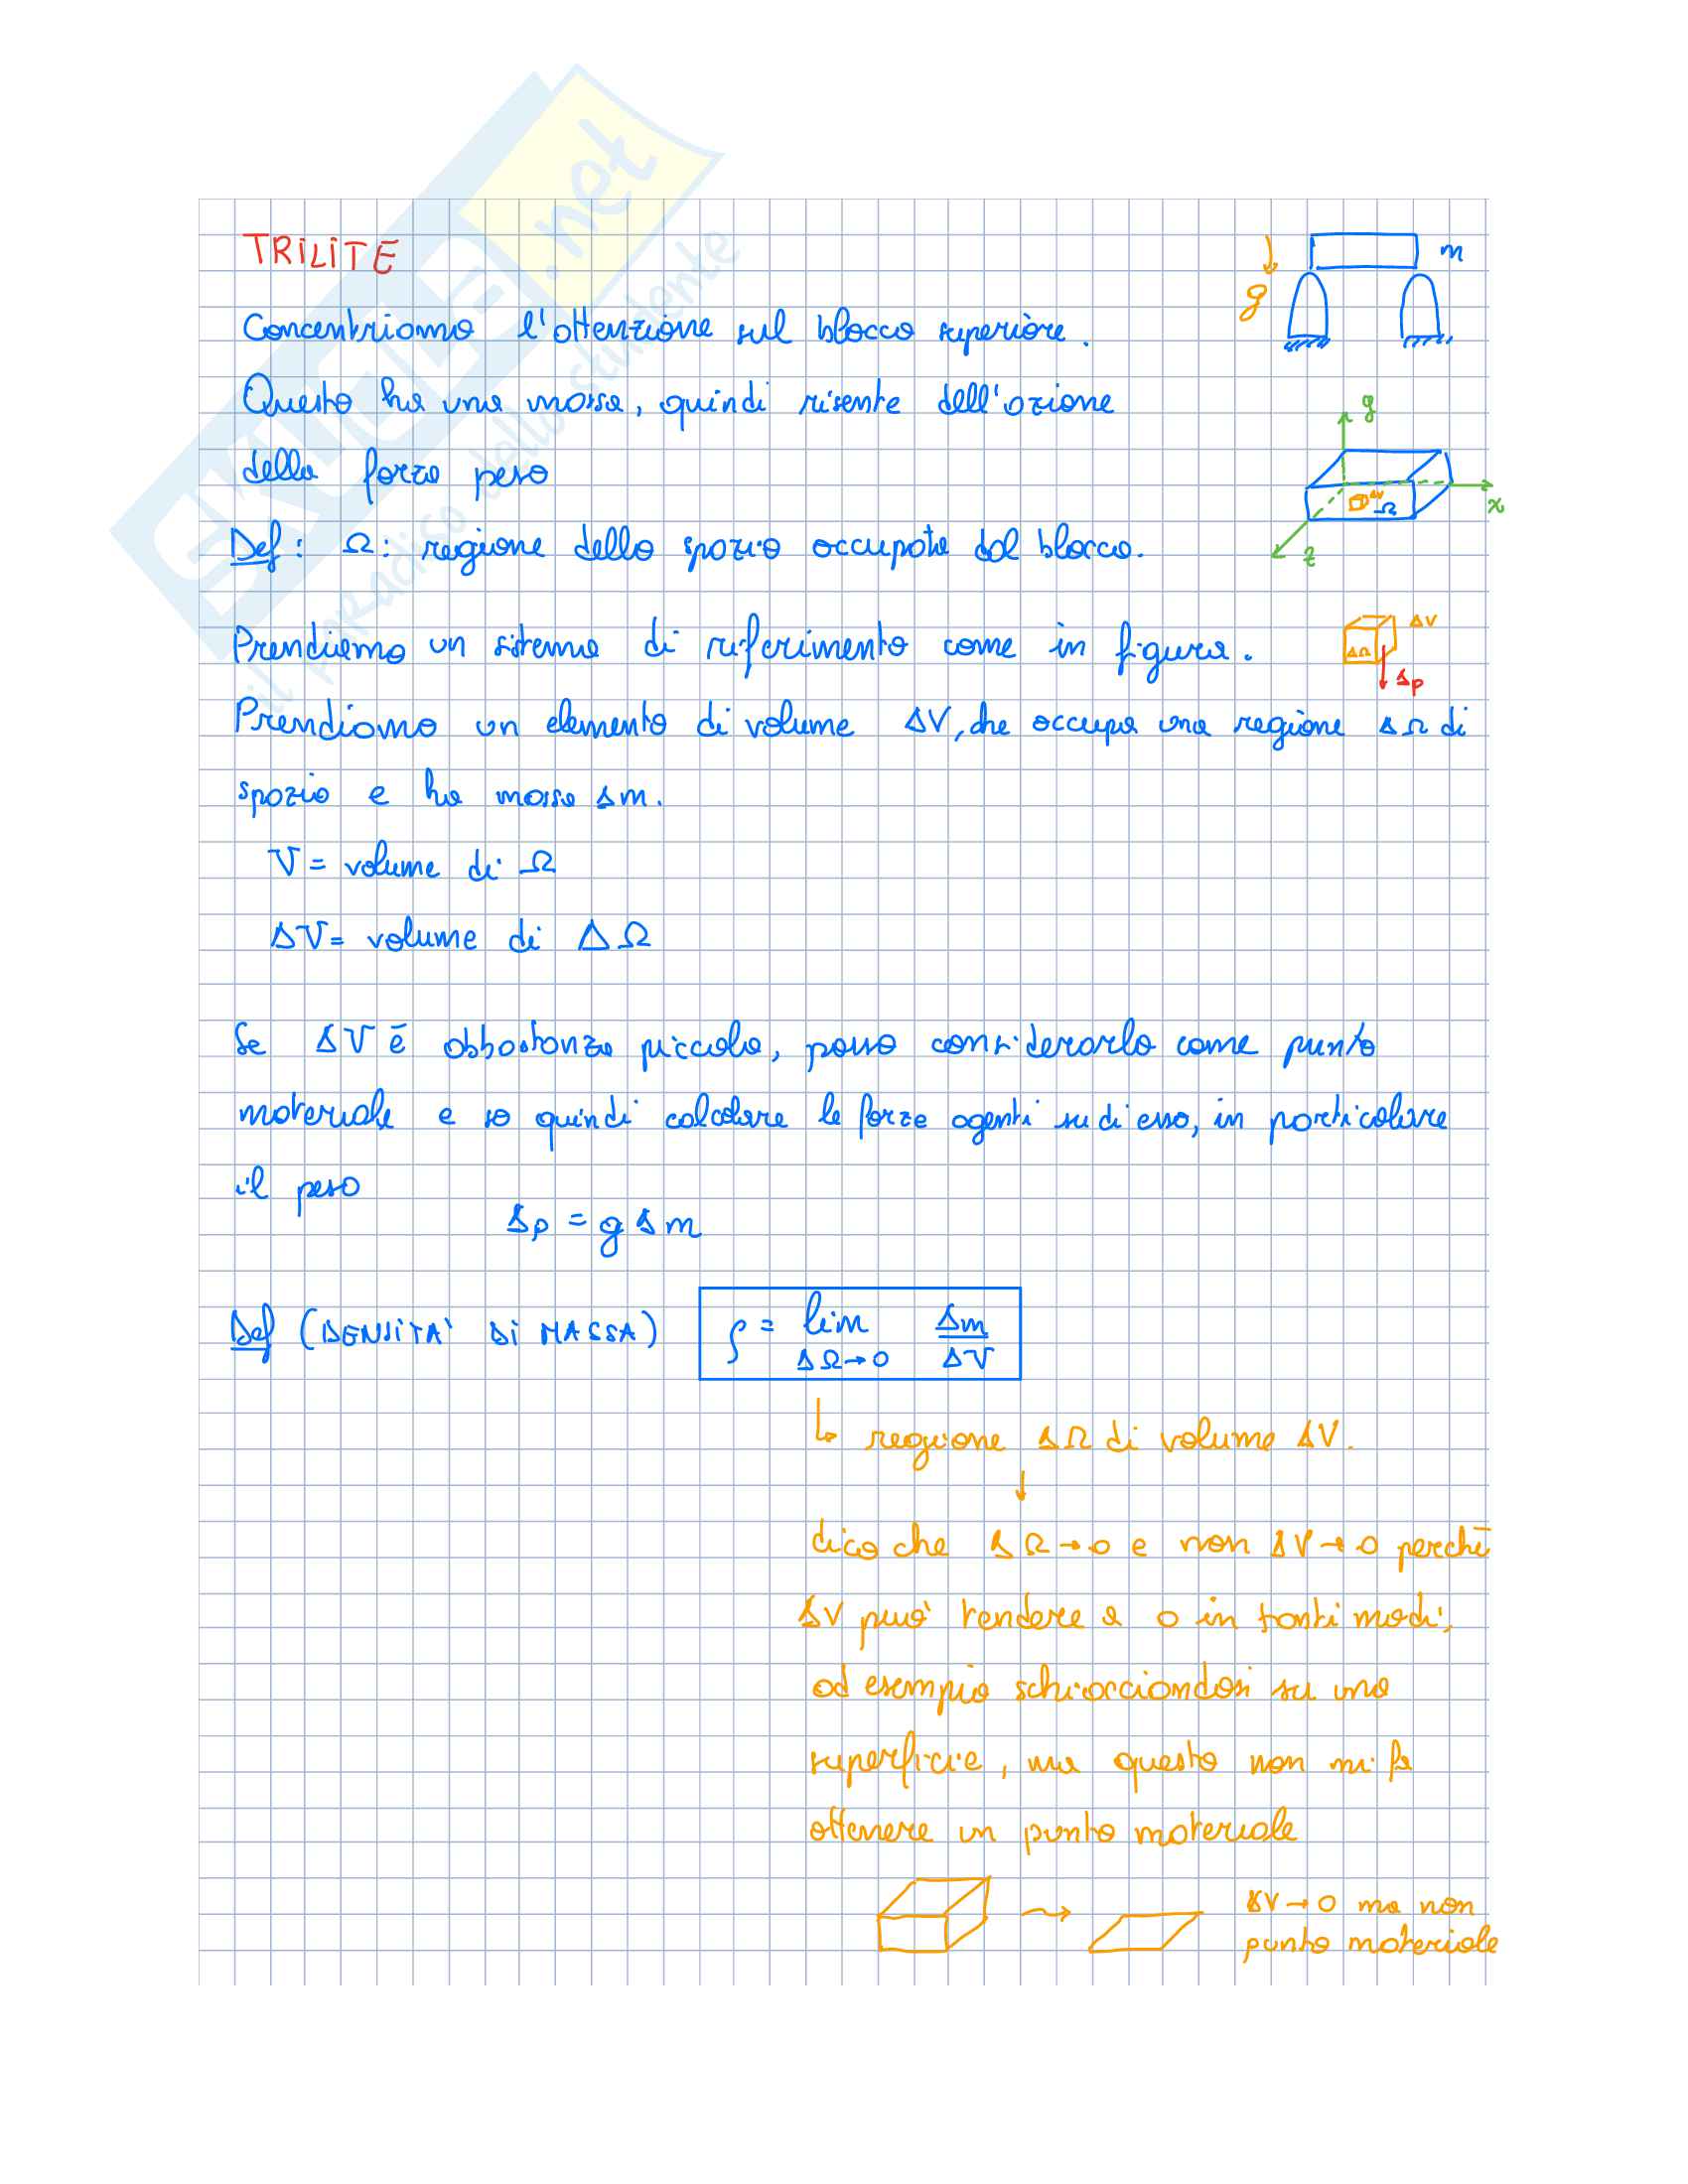 TRILITE
m
g
Concentriamo l'attenzione sul blocco superiore.
Questo ha una massa, quindi risente dell'azione
della forza peso
y
ΔV
Ω
x
z
Def: Ω: regione dello spazio occupata dal blocco.
Prendiamo un sistema di riferimento come in figura.
ΔV
ΔΩ
Δp
Prendiamo un elemento di volume ΔV, che occupa una regione ΔΩ di
spazio e ha massa Δm.
V = volume di Ω
ΔV = volume di ΔΩ
Se ΔV è abbastanza piccolo, posso considerarlo come punto
materiale e so quindi calcolare le forze agenti su di esso, in particolare
il peso
Δp = g Δm
Def (DENSITA' DI MASSA) ρ = lim ΔΩ→0 Δm/ΔV
↳ regione ΔΩ di volume ΔV.
↓
dico che ΔΩ→0 e non ΔV→0 perchè
ΔV può tendere a 0 in tanti modi,
ad esempio schiacciandosi su una
superficie, ma questo non mi fa
ottenere un punto materiale
ΔV→0 ma non
punto materiale
SKUOLA.net
il paradiso dello studente